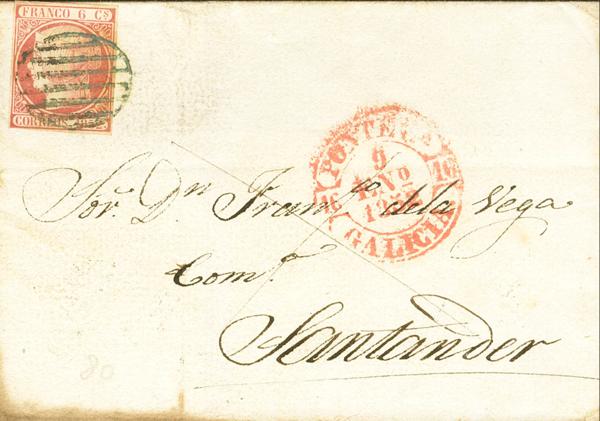 FRANCO 6 Cs
CORREOS 1852
PONTEV
9
ENO
1853
16 16
GALICIA
Sor. Dn Franco de la Vega
Comte
Santander
80